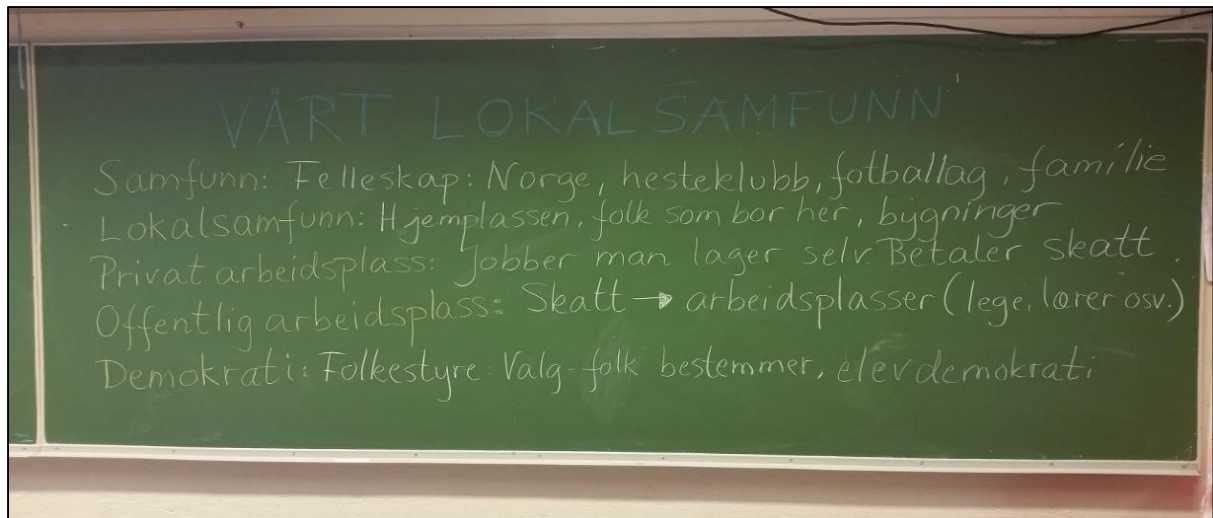 VÅRT LOKALSAMFUNN
Samfunn: Felleskap: Norge, hesteklubb, fotballag, familie
Lokalsamfunn: Hjemplassen, folk som bor her, bygninger
Privat arbeidsplass: Jobber man lager selv Betaler skatt.
Offentlig arbeidsplass: Skatt → arbeidsplasser (lege, lærer osv.)
Demokrati: Folkestyre: Valg-folk bestemmer, elevdemokrati